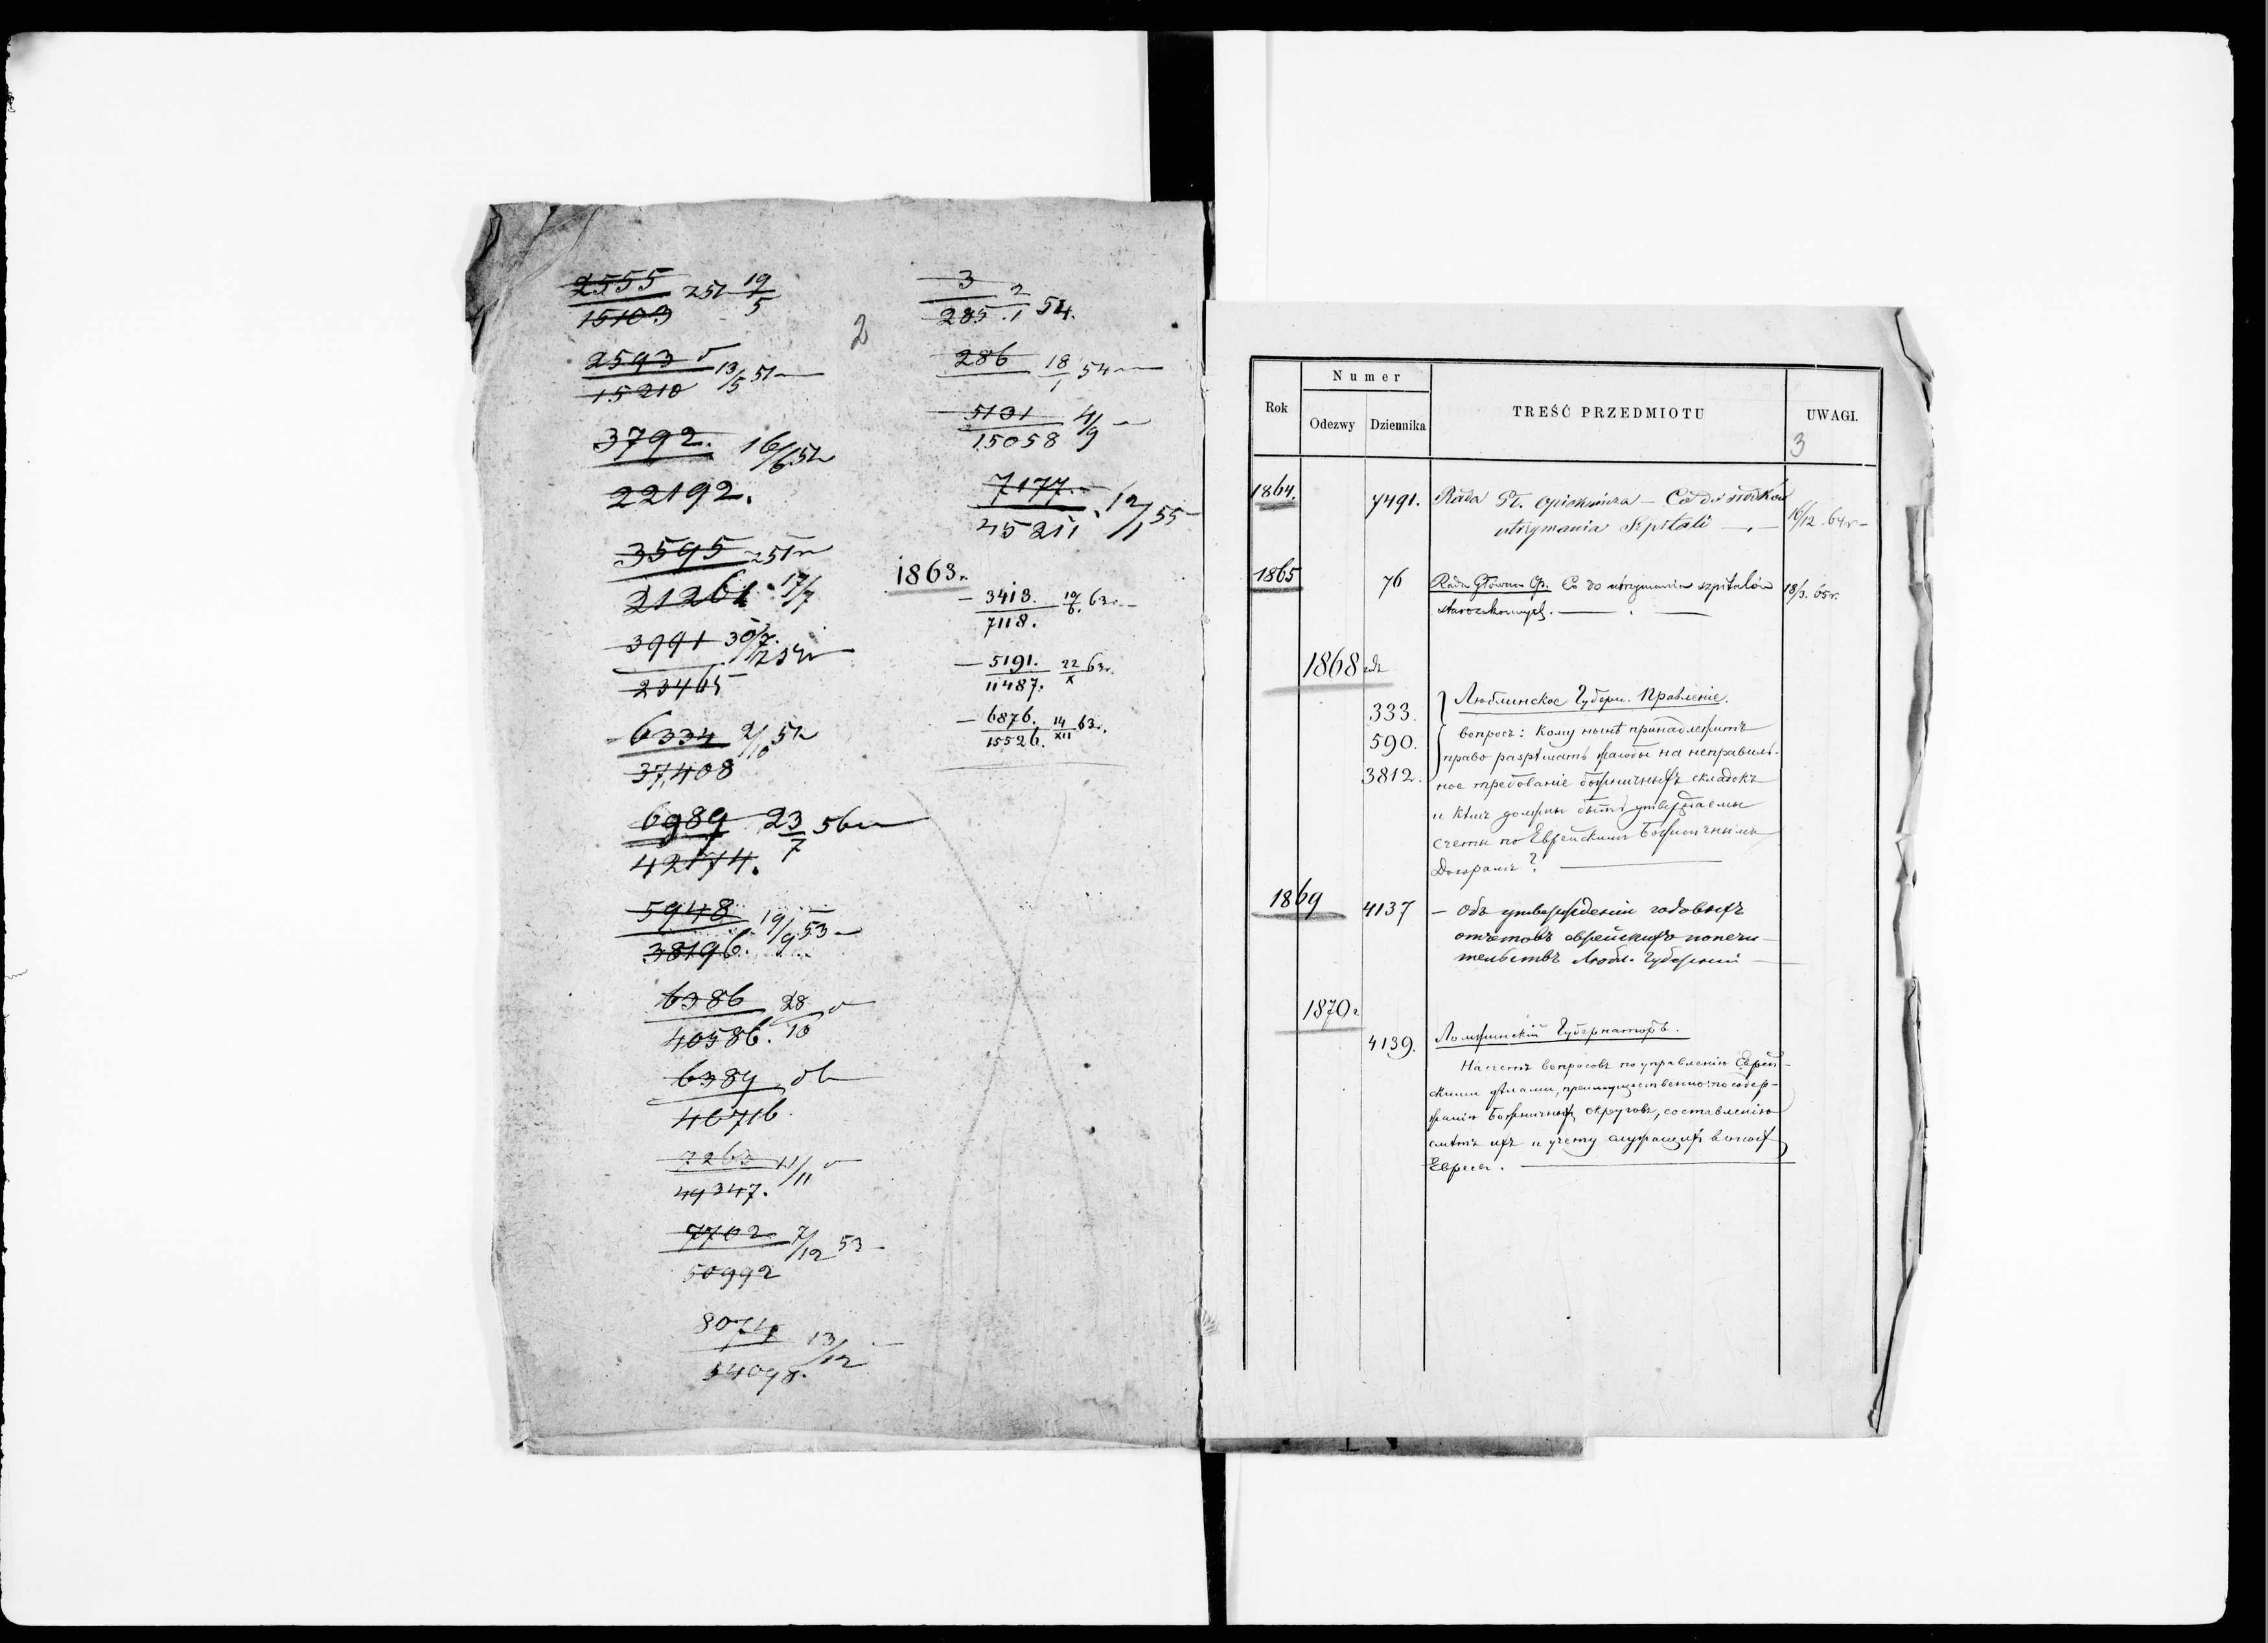 2555
15103 19/5
2593
15210 13/5 51
3792. 16/6 51
22192.
3595 251
21261 17/7
3991 30/7
23465
6334 2/10 51
37,408
6989 23/7 56
42174.
5948
38196. 19/9 53
6386 28/10
40586.
6389
40716
7263 11/11
49347.
7702 7/12 53
50992
8074 13/12
54098.
2
3
285. 2/1 54.
286 18/1 54
5101 4/9
15058
7177. 12/1 55
45211
1863r.
3413. 19/6. 63r.
7118.
5191. 22/X 63r.
11487.
6876. 14/XII 63r.
15526.
Rok
Numer
Odezwy Dziennika
TREŚĆ PRZEDMIOTU
UWAGI.
3
1864. 7491. Rada Gł. Opiekuńcza – Co do
utrzymania Szpitali 16/12. 64r –
1865 76 Rada Główna Op. Co do utrzymania szpitalów 18/3. 65r.
starozakonnych.
1868
Люблинское Губерн. Правленіе.
333. вопросъ: Кому нынѣ принадлежитъ
590. право разрѣшать жалобы на неправиль-
3812. ное требованіе божничныхъ складокъ
и кѣмъ должны быть утверждаемы
счеты по Еврейскимъ Божничнымъ
Дозорамъ?
1869 4137 – Объ утвержденіи годовыхъ
отчетовъ еврейскихъ попечи-
тельствъ Любл. Губерніи
1870г.
4139. Ломжинскій Губернаторъ.
Насчетъ вопросовъ по управленію Еврей-
скими дѣлами, преимущественно: по содер-
жанію Божничныхъ Округовъ, составленію
смѣтъ ихъ и учету
Евреевъ.